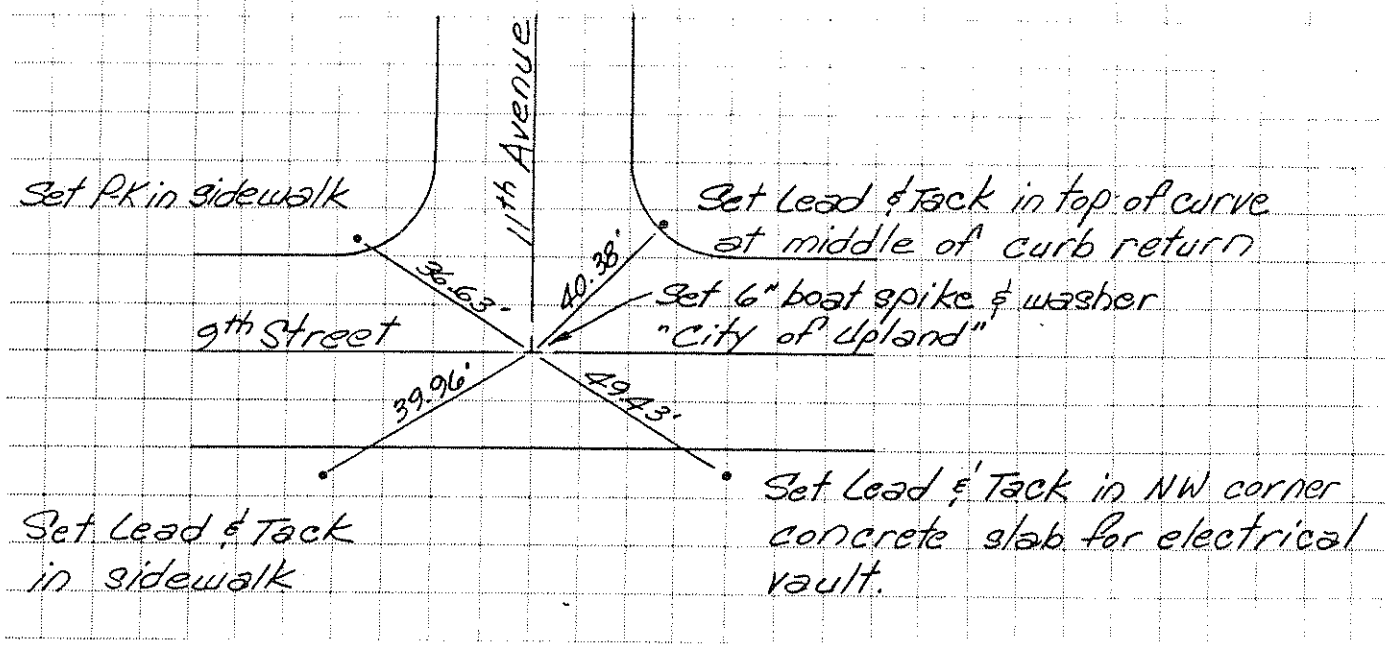 11th Avenue
Set P.K in sidewalk
Set Lead & Tack in top of curve
at middle of curb return
36.63'
40.38'
Set 6" boat spike & washer
"City of Upland"
9th Street
39.96'
49.43'
Set Lead & Tack
in sidewalk
Set Lead & Tack in NW corner
concrete slab for electrical
vault.